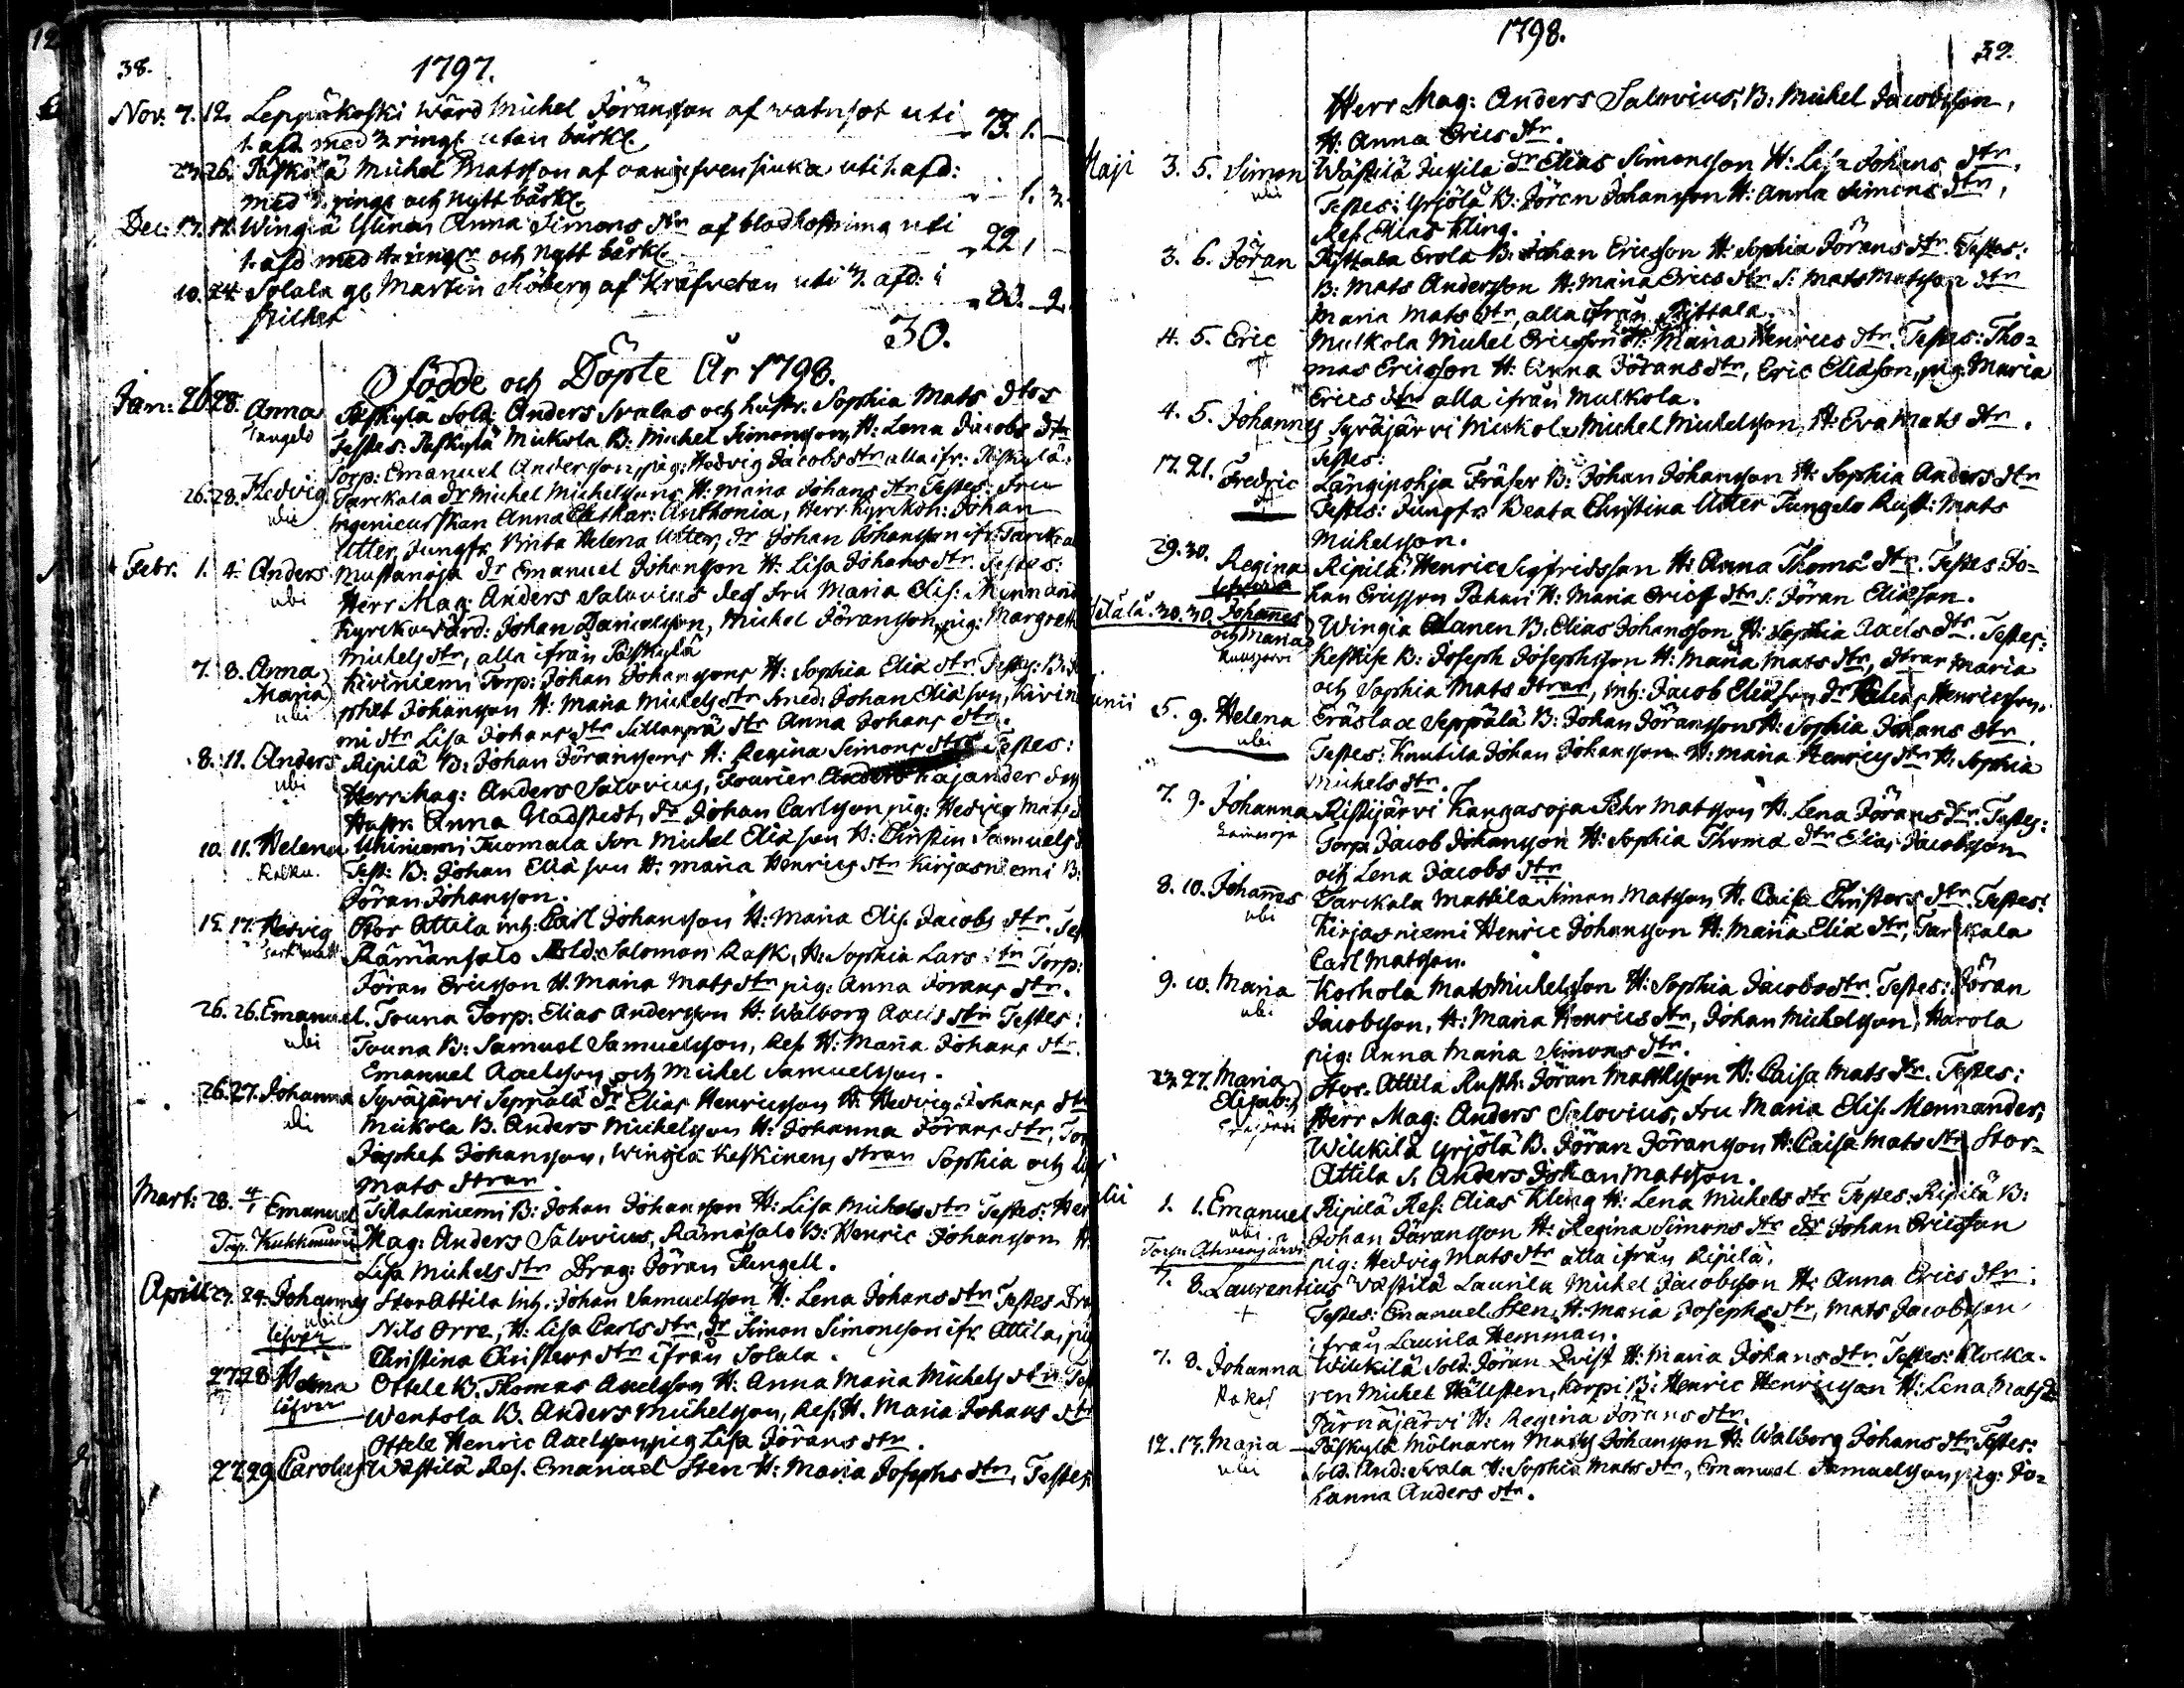 38.
1797.
Nov: 7. 12. Leppäkoski Wärd Michel Jöransson af watusot uti
1. afd. med 3 ringr utan bårkl. 73. 1. —
23. 26. Påskölä Michel Matsson af uti 1. afd:
med 3. ringr och nytt bårkl. 1. 3.
Dec: 13. 17. Wingiä Anna Simons dtr af blodhostning uti
1. afd med 4. ringr och nytt bårkl. 22, —
10. 24. Solala gl. Martin Siöberg af Kräfvetan uti 3. afd: i
stilhet 83. — 2.
30.
Födde och Döpte År 1798.
Jan: 26 28. Anna Påskylä Sold: Anders Svalas och hustr. Sophia Mats dtrs
Tangelo Testes: Påskylä Mickola B: Michel Simonsson, H: Lena Jacobs dtr
Torp: Emanuel Andersson, pig: Hedvig Jacobs dtr alla ifr. Påskylä.
26. 28. Hedvig Tarckala dr Michel Michelssons H: Maria Johans dtr Testes: Fru
ubi Ingenieurskan Anna Cathar: Anthonia, Herr Kyrckoh: Johan
Utter, Jungfr. Brita Helena Utter, dr Johan Johansson ifr. Tarckala
Febr. 1. 4. Anders Mustanoja dr Emanuel Johansson H: Lisa Johans dtr. Testes:
ubi Herr Mag: Anders Salovius des fru Maria Elis: Mennand
Kyrckovärd: Johan Danielsson, Michel Jöransson, pig: Margreth
Michels dtr, alla ifrån Påskylä
7. 8. Anna Kiviniemi Torp: Johan Johanssons H: Sophia Elia dtr. Testes: B: Jo
Maria Johansson H: Maria Michels dtr Smed: Johan Eliasson, Kivinie
ubi mi dtr Lisa Johans dtr dtr Anna Johans dtr.
8. 11. Anders Ripilä B: Johan Jöranssons H: Regina Simons dtr Testes:
ubi Herr Mag: Anders Salovius, Fourier Anders Kajander
Hustr. Anna Nadstedt, dr Johan Carlsson pig: Hedvig Mats
10. 11. Helena Uhiniemi Tuomala Son Michel Eliasson H: Christin Samuels
Test: B: Johan Eliasson H: Maria Henrics dtr Kirjasniemi B:
Jöran Johansson.
15. 17. Hedvig Stor Attila inh: Carl Johansson H: Maria Elis. Jacobs dtr. Tes
Rämänsalo Sold: Salomon Rask, H: Sophia Lars dtr Torp:
Jöran Ericsson H. Maria Mats dtr pig: Anna Jörans dtr.
26. 26. Emanuel. Touna Torp: Elias Andersson H: Walborg Axels dtr Testes:
ubi Touna B: Samuel Samuelsson, Ref. H: Maria Johans dtr.
Emanuel Axelsson och Michel Samuelsson.
26. 27. Johanna Syväjärvi Seppälä dr Elias Henricsson H: Hedvig Johans dtr
ubi Mickola B. Anders Michelsson H: Johanna Jörans dtr, Tor
Johansson, Wingiä Keskinens dtran Sophia och
Mats dtran.
Mart: 28. 4/1 Emanuel Tikalaniemi B: Johan Johansson H: Lisa Michels dtr Testes: Her
Mag: Anders Salovius, Rämäsalo B: Henric Johansson H.
Lisa Michels dtr Drag: Jöran Tungell.
Aprill 23. 24. Johannes Stor Attila Inh. Johan Samuelsson H. Lena Johans dtr Testes
ubi Nils Orre, H: Lisa Carls dtr, dr Simon Simonsson ifr. Attila, pig
Christina Christers dtr ifrån Solala.
27. 28 Helena Ottele B. Thomas Axelsson H: Anna Maria Michels dtr Tes
Wentola B. Anders Michelsson, Ref. H. Maria Johans dtr
Ottele Henric Axelsson, pig Lisa Jörans dtr.
27. 29 Carolus Wästilä Ref. Emanuel Sten H: Maria Josephs dtr, Testes:
1798.
39.
Herr Mag: Anders Salovius, B: Michel Jacobsson,
H: Anna Erics dtr.
Maji 3. 5. Simon Wästilä Jussila dr Elias Simonsson H: Lisa Johans dtr.
ubi Testes: Yrjölä B: Jöran Johansson H: Anna Simons dtr,
Ref. Elias Kling.
3. 6. Jöran Pittala Erola B: Johan Ericsson H: Sophia Jörans dtr. Testes:
B: Mats Andersson H: Maria Erics dtr S: Mats Matsson dtr
Maria Mats dtr, alla ifrån Pittala.
4. 5. Eric Mulkola Michel Ericsson H: Maria Henrics dtr. Testes: Tho=
mas Ericsson H: Anna Jörans dtr, Eric Eliasson, pig: Maria
Erics dtr alla ifrån Mulkola.
4. 5. Johannes Syväjärvi Mickola Michel Michelsson, H: Eva Mats dtr.
Testes:
17. 21. Fredric Längipohja Fräser B: Johan Johansson H: Sophia Anders dtr
Testes: Jungfr: Beata Christina Utter Tungelo Rust: Mats
Michelsson.
29. 30. Regina Ripilä Henric Sigfridsson H: Anna Thoms dtr. Testes: Jo=
han Ericsson Pahari H: Maria Erics dtr S: Jöran Eliasson.
30. 30. Johannes Wingiä Alanen B. Elias Johansson H: Sophia Axels dtr. Testes:
och Maria Keskise B: Joseph Josephsson H: Maria Mats dtr, dtrar Maria
och Sophia Mats dtrar, inh: Jacob Eliasson dr Elias Henricsson.
Junii 5. 9. Helena Eräslax Seppälä B: Johan Jöransson H: Sophia Johans dtr.
ubi Testes: Knutila Johan Johansson H: Maria Henrics dtr H: Sophia
Michels dtr.
7. 9. Johanna Ristijärvi Kangasoja Pehr Matsson H. Lena Jörans dtr. Testes:
Torp: Jacob Johansson H: Sophia Thoma dtr Elias Jacobsson
och Lena Jacobs dtr
8. 10. Johannes Tarckala Mattila Simon Matsson H. Caisa Christers dtr. Testes:
ubi Kirjasniemi Henric Johansson H: Maria Elia dtr, Tarckala
Carl Matsson.
9. 10. Maria Korhola Mats Michelsson H: Sophia Jacobs dtr. Testes: Jöran
ubi Jacobsson, H: Maria Henrics dtr, Johan Michelsson, Harola
pig: Anna Maria Simons dtr.
23. 27. Maria Stor-Attila Rusth: Jöran Matthsson H: Caisa Mats dtr. Testes:
Elisab: Herr Mag: Anders Salovius, fru Maria Elis. Mennander,
Wilckilä Yrjölä B. Jöran Jöransson H: Caisa Mats dtr, Stor=
Attila S. Anders Johan Matsson.
1. 1. Emanuel Ripilä Ref: Elias Kling H: Lena Michels dtr Testes: Ripilä B:
ubi Johan Jöransson H: Regina Simons dtr dr Johan Ericsson
pig: Hedvig Mats dtr alla ifrån Ripilä.
7. 8. Laurentius Västilä Laurila Michel Jacobsson H: Anna Erics dtr.
+ Testes: Emanuel Sten, H: Maria Josephs dtr, Mats Jacobsson
ifrån Laurila Hemman.
7. 8. Johanna Wilckilä Sold: Jöran Qvist H: Maria Johans dtr. Testes: Klocka=
ren Michel Hällsten, Korpi B: Henric Henricsson H: Lena Mats d
Pärnäjärvi H: Regina Jörans dtr.
12. 13. Maria Påskylä Mölnaren Johansson H: Walborg Johans dtr. Testes:
ubi Sold: And: Svala H: Sophia Mats dtr, Emanuel Samuelsson, pig: Jo=
hanna Anders dtr.